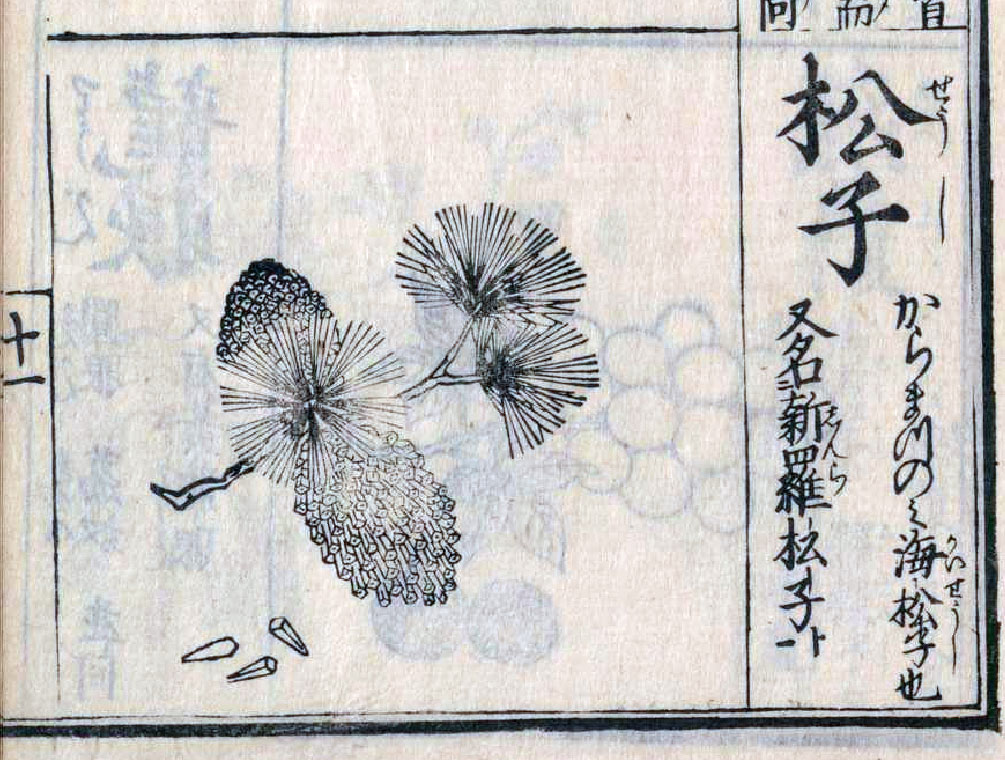 松子
せうし
からまつのミ海松子也
かいせうし
又名新羅松子ト
しんら
十一